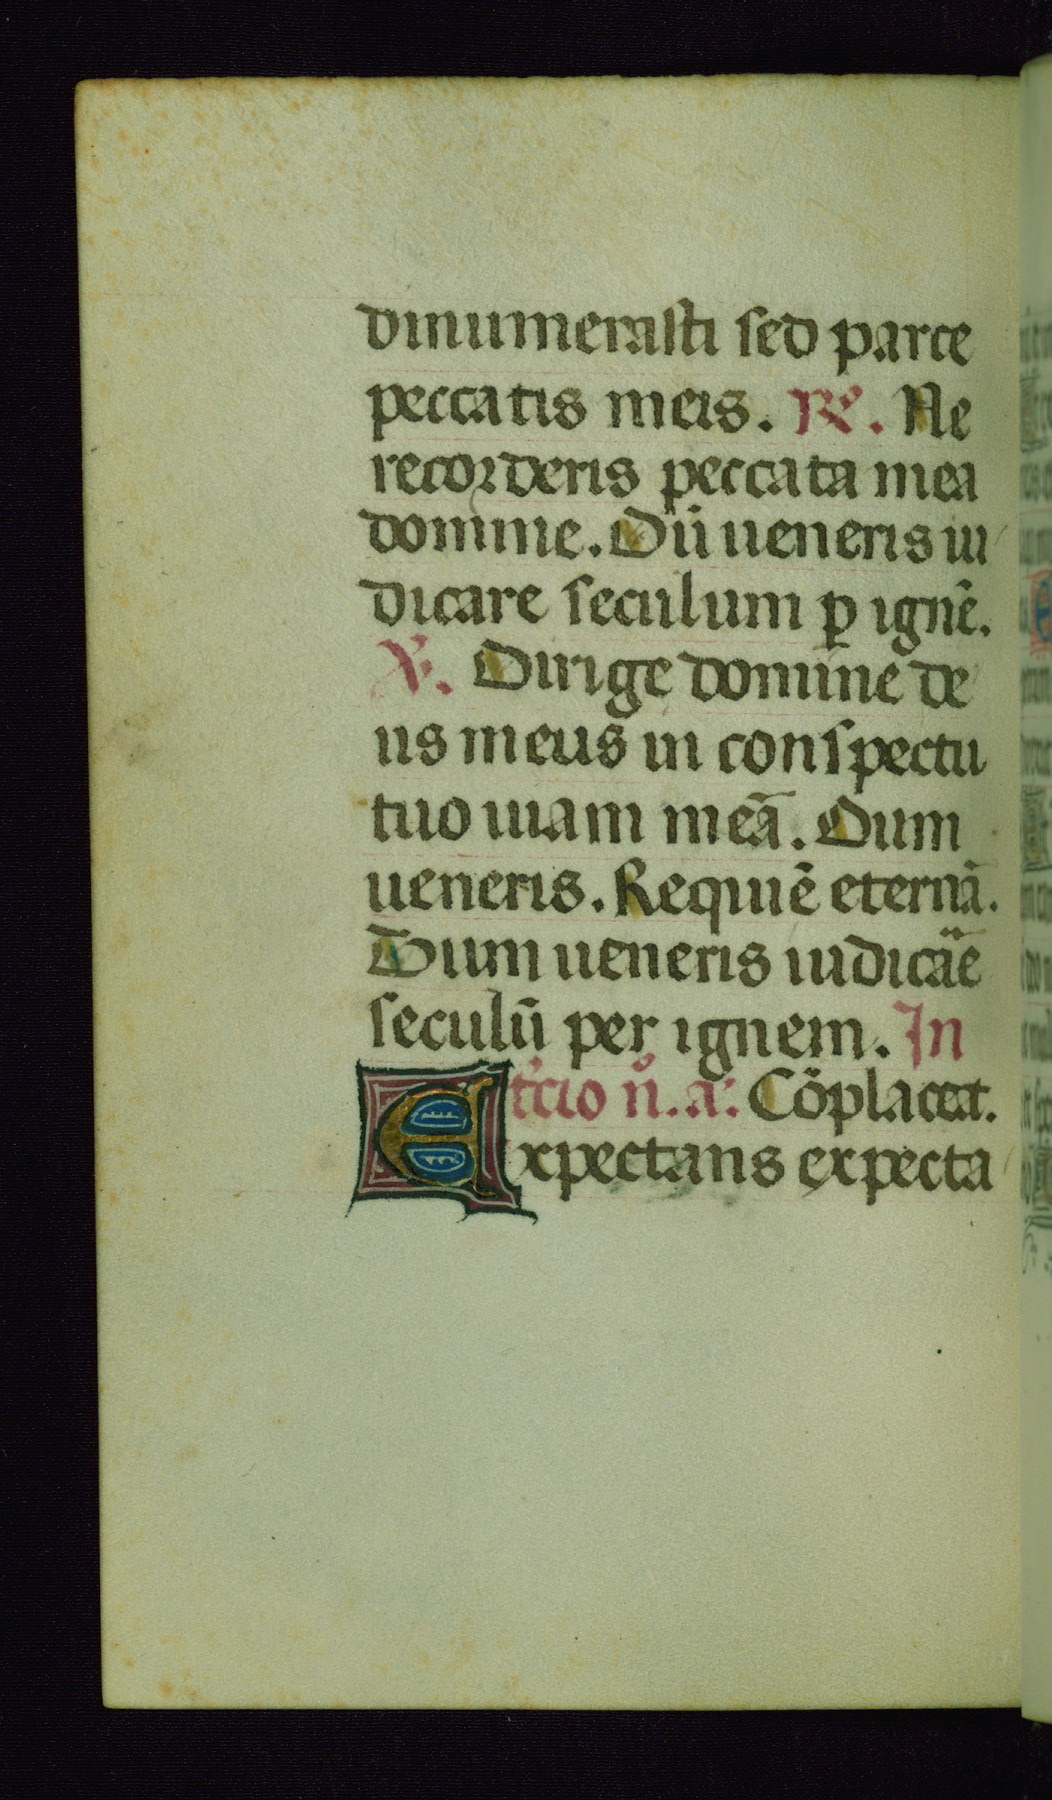 dinumerasti sed parce
peccatis meis. R̃e. Ne
recorderis peccata mea
domine. Dũ ueneris iu
dicare seculum ꝑ ignẽ.
V̶. Dirige domine de
us meus in conspectu
tuo uiam meã. Dum
ueneris. Requiẽ eternã.
Dum ueneris iudicãe
seculũ per ignem. In
t̃cio nͦ. a: Cõplaceat.
Expectans expecta